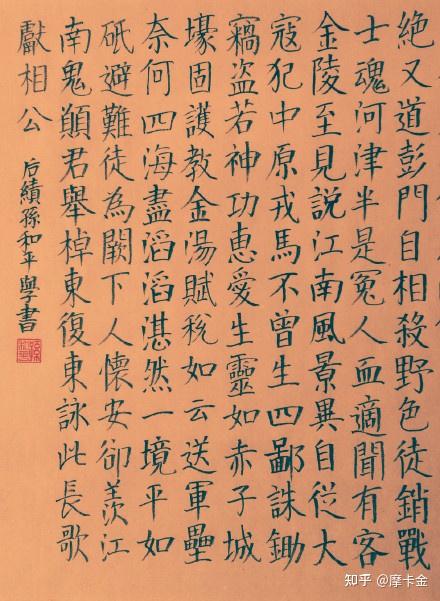 絕又道彭門自相殺野色徒銷戰
士魂河津半是冤人血適聞有客
金陵至見說江南風景異自從大
寇犯中原戎馬不曾生四鄙誅鋤
竊盜若神功惠愛生靈如赤子城
壕固護教金湯賦稅如云送軍壘
奈何四海盡滔滔湛然一境平如
砥避難徒為闕下人懷安卻羨江
南鬼願君舉棹東復東詠此長歌
獻相公
后績孫和平學書
知乎 @摩卡金